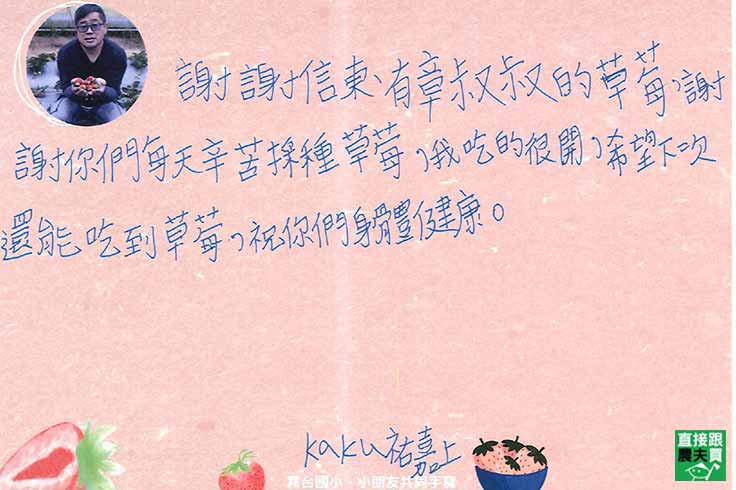 謝謝信東、有章叔叔的草莓,謝
謝你們每天辛苦採種草莓,我吃的很開,希望下次
還能吃到草莓,祝你們身體健康。
kaku祐嘉上
霧台國小-小朋友共同手寫
直接跟
農夫買